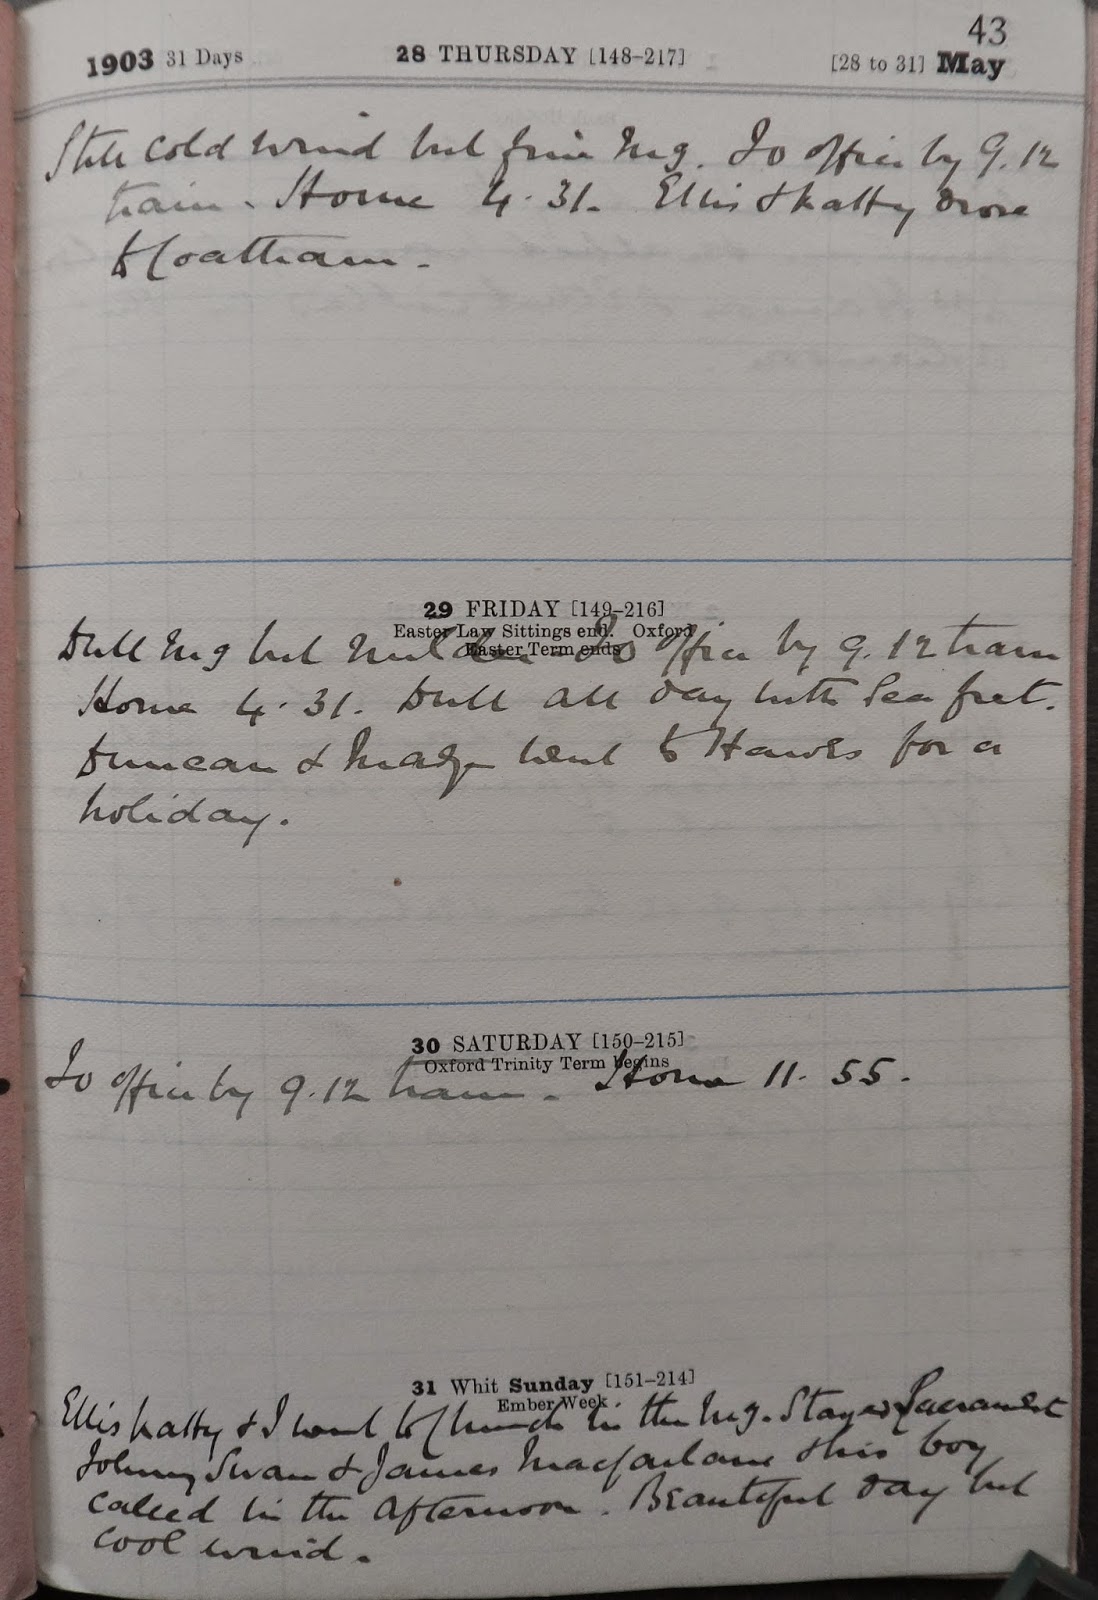 43
1903 31 Days 28 THURSDAY [148-217] [28 to 31] May
Still cold wind but fine Mg. To office by 9.12
train. Home 4.31. Ellis & Katty drove
to Coatham.
29 FRIDAY [149-216]
Easter Law Sittings end. Oxford
Easter Term ends
Dull Mg but milder. To office by 9.12 train
Home 4.31. Dull all day with Sea fret.
Duncan & Madge went to Hawes for a
holiday.
30 SATURDAY [150-215]
Oxford Trinity Term begins
To office by 9.12 train. Home 11.55.
31 Whit Sunday [151-214]
Ember Week
Ellis Katty & I went to Church in the Mg. Stayed Sacrament
Johnny Swan & James Macfarlane & his boy
called in the afternoon. Beautiful day but
cool wind.